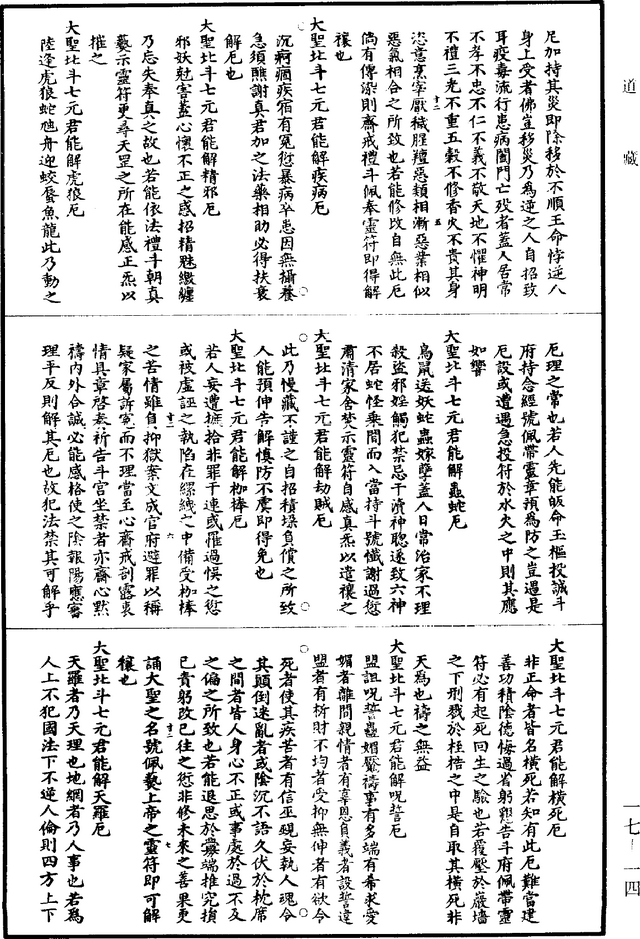 道藏
足加持其災即除移於不順王命悖逆八
身上受者佛豈移災乃為逆之人自招致
耳疫毒流行患病闔門亡歿者蓋人居常
不孝不忠不仁不義不敬天地不懼神明
不禮三光不重五穀不修香火不貴其身
恣意烹宰厭穢腥羶惡類相漸惡業相似
惡氣相合之所致也若能修改自無此厄
倘有傳染則齋戒禮斗佩奉靈符即得解
禳也
大聖北斗七元君能解疾病厄
沉痾痼疾宿有冤愆暴病卒患因無攝養
急須醮謝真君加之法藥相助必得扶衰
解厄也
大聖北斗七元君能解精邪厄
邪妖尅害蓋心懷不正之感招精魅纏
乃忘失奉真之故也若能依法禮斗朝真
爇示靈符更尋天罡之所在能感正炁以
摧之
大聖北斗七元君能解虎狼厄
陸逢虎狼蛇虺舟迎蛟蜃魚龍此乃動之
厄理之常也若人先能皈命玉樞投誠斗
府持念經號佩帶靈章預為防之豈遇是
厄設或遭遇急投符於水火之中則其應
如響
大聖北斗七元君能解蟲蛇厄
鳥鼠送妖蛇蟲嫁孽蓋人日常治家不理
殺盜邪婬觸犯禁忌干瀆神聰遂致六神
不居蛇怪乘間而入當持斗號懺謝過愆
肅清家舍焚示靈符自感真炁以遣禳之
大聖北斗七元君能解劫賊厄
此乃慢藏不謹之自招積垜負償之所致
人能預伸告解慎防不虞即得免也
大聖北斗七元君能解枷棒厄
若人妄遭摭拾非罪干連或罹過悞之愆
或被虛誣之執陷在縲絏之中備受枷棒
之苦情雖自抑獄案文成官府避罪以稱
疑家屬訴寃而不理當至心齋戒剖露衷
情具章啓奏祈告斗宮坐禁者亦齋心默
禱內外合誠必能感格使之陰報陽應審
理平反則解其厄也故犯法禁其可解乎
大聖北斗七元君能解橫死厄
非正命者皆名橫死若知有此厄難當建
善功積陰德悔過省躬懇告斗府佩帶靈
符必有起死回生之驗也若覆壓於巖墻
之下刑戮於桎梏之中是自取其橫死非
天為也禱之無益
大聖北斗七元君能解呪誓厄
盟詛呪誓蠱媚厭禱事有多端有希求愛
媚者有離間親情者有辜恩負義者設誓違
盟者有枿財不均者受抑無伸者有欲令
死者使其疾苦者有信巫覡妄執人魂令
其顛倒迷亂者或陰沉不語久伏於枕席
之間者皆人身心不正或事處於過不及
之偏之所致也若能退思於釁端推究損
己責躬改已往之愆非修未來之善果更
誦大聖之名號佩爇上帝之靈符即可解
禳也
大聖北斗七元君能解天羅厄
天羅者乃天理也地網者乃人事也若為
人上不犯國法下不逆人倫則四方上下
一七-一四